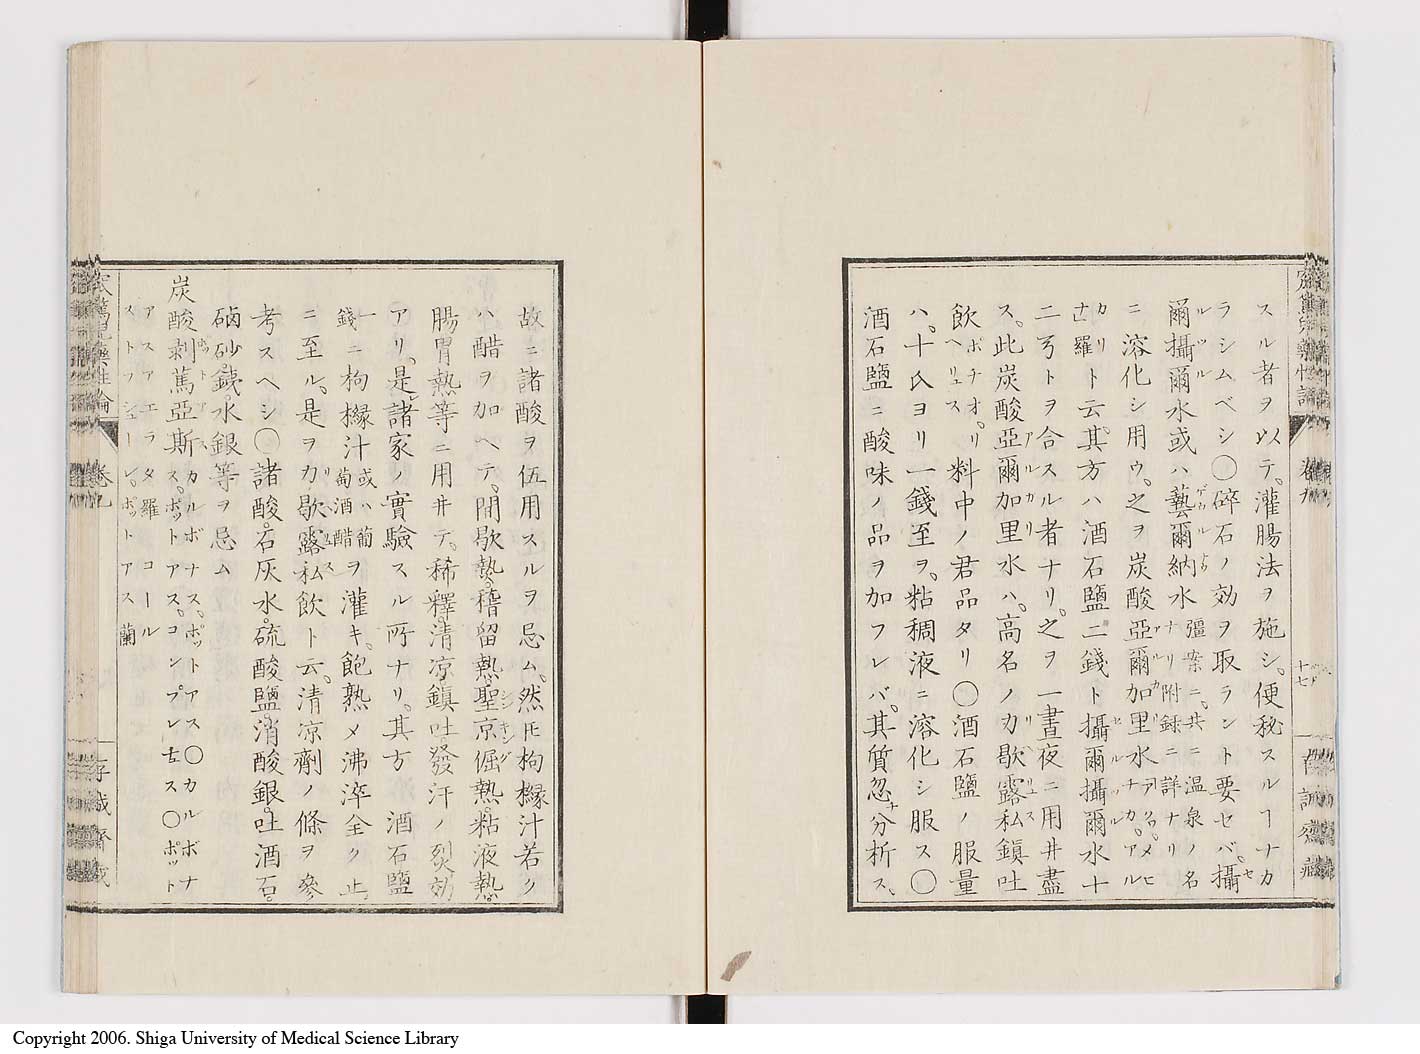 スル者ヲ以テ。灌腸法ヲ施シ。便秘スルヿナカ
ラシムベシ〇碎石ノ効ヲ取ラント要セバ。攝
爾攝爾水或ハ藝爾納水彊案ニ。共ニ温泉ノ名ナリ附録ニ詳ナリ
ニ溶化シ用ウ。之ヲ炭酸亞爾加里水
カリ羅ト云。其方ハ酒石鹽二錢ト攝爾攝爾水十
二亐トヲ合スル者ナリ。之ヲ一晝夜ニ用井盡
ス。此炭酸亞爾加里水ハ。高名ノカ歇露私鎭吐
飲ヘボチオ。リリュス料中ノ君品タリ〇酒石鹽ノ服量
ハ。十氏ヨリ一錢至ヲ。粘稠液ニ溶化シ服ス〇
酒石鹽ニ酸味ノ品ヲ加フレバ。其質忽分析ス。
十七
故ニ諸酸ヲ伍用スルヲ忌ム。然𪜈枸櫞汁若ク
ハ醋ヲ加ヘテ。間歇熱。稽留熱。聖京倔熱。粘液熱。
腸胃熱等ニ用井テ。稀釋。清凉。鎭吐發汗ノ烈効
アリ。是諸家ノ實驗スル所ナリ。其方 酒石鹽
一錢ニ枸櫞汁或ハ葡萄酒醋ヲ灌キ。飽熟メ沸滓全ク止
ニ至ル。是ヲカ歇露私飲ト云。清凉劑ノ條ヲ參
考スヘシ〇諸酸。石灰水。硫酸鹽。消酸銀。吐酒石。
磠砂。鐵。水銀等ヲ忌ム
炭酸剥篤亞斯カルボナス。ポットアス〇カルボナス。ポットアス。コンプレ
アスアエラタ羅コール
ストフシューレ。ポットアス蘭
卷九